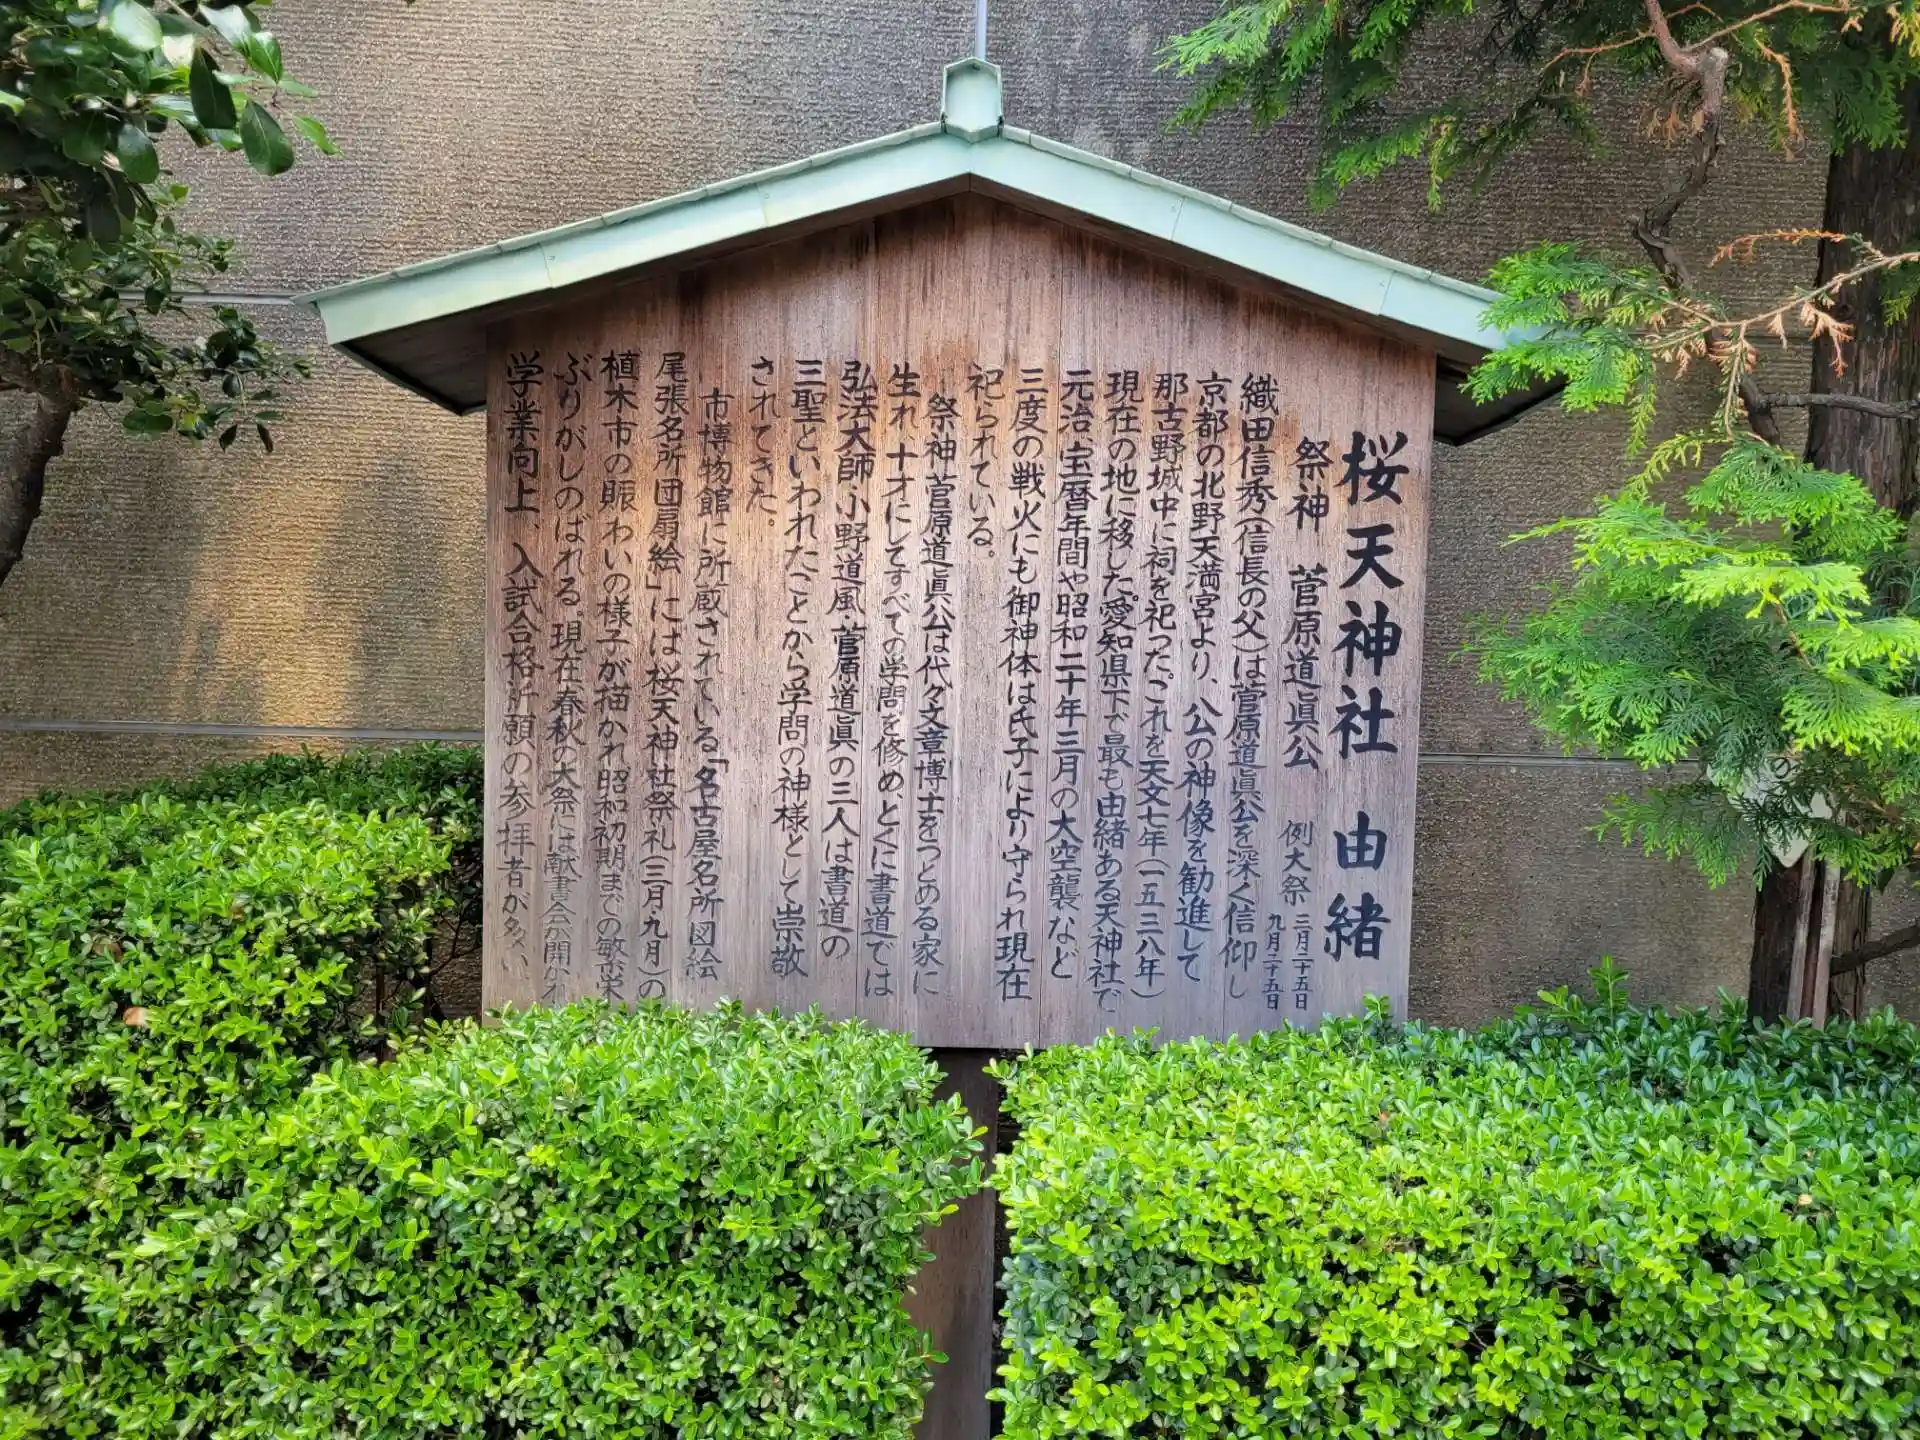 桜天神社 由緒
祭神 菅原道眞公 例大祭 三月二十五日
九月二十五日
織田信秀(信長の父)は菅原道眞公を深く信仰し
京都の北野天満宮より、公の神像を勧進して
那古野城中に祠を祀った。これを天文七年(一五三八年)
現在の地に移した。愛知県下で最も由緒ある天神社で
元治、宝暦年間や昭和二十年三月の大空襲など
三度の戦火にも御神体は氏子により守られ現在
祀られている。
祭神菅原道眞公は代々文章博士をつとめる家に
生れ、十才にしてすべての学問を修め、とくに書道では
弘法大師・小野道風・菅原道眞の三人は書道の
三聖といわれたことから学問の神様として崇敬
されてきた。
市博物館に所蔵されている「名古屋名所図絵
尾張名所団扇絵」には桜天神社祭礼(三月・九月)の
植木市の賑わいの様子が描かれ昭和初期までの繁栄
ぶりがしのばれる。現在春秋の大祭には献書会が開かれ
学業向上、入試合格祈願の参拝者が多い